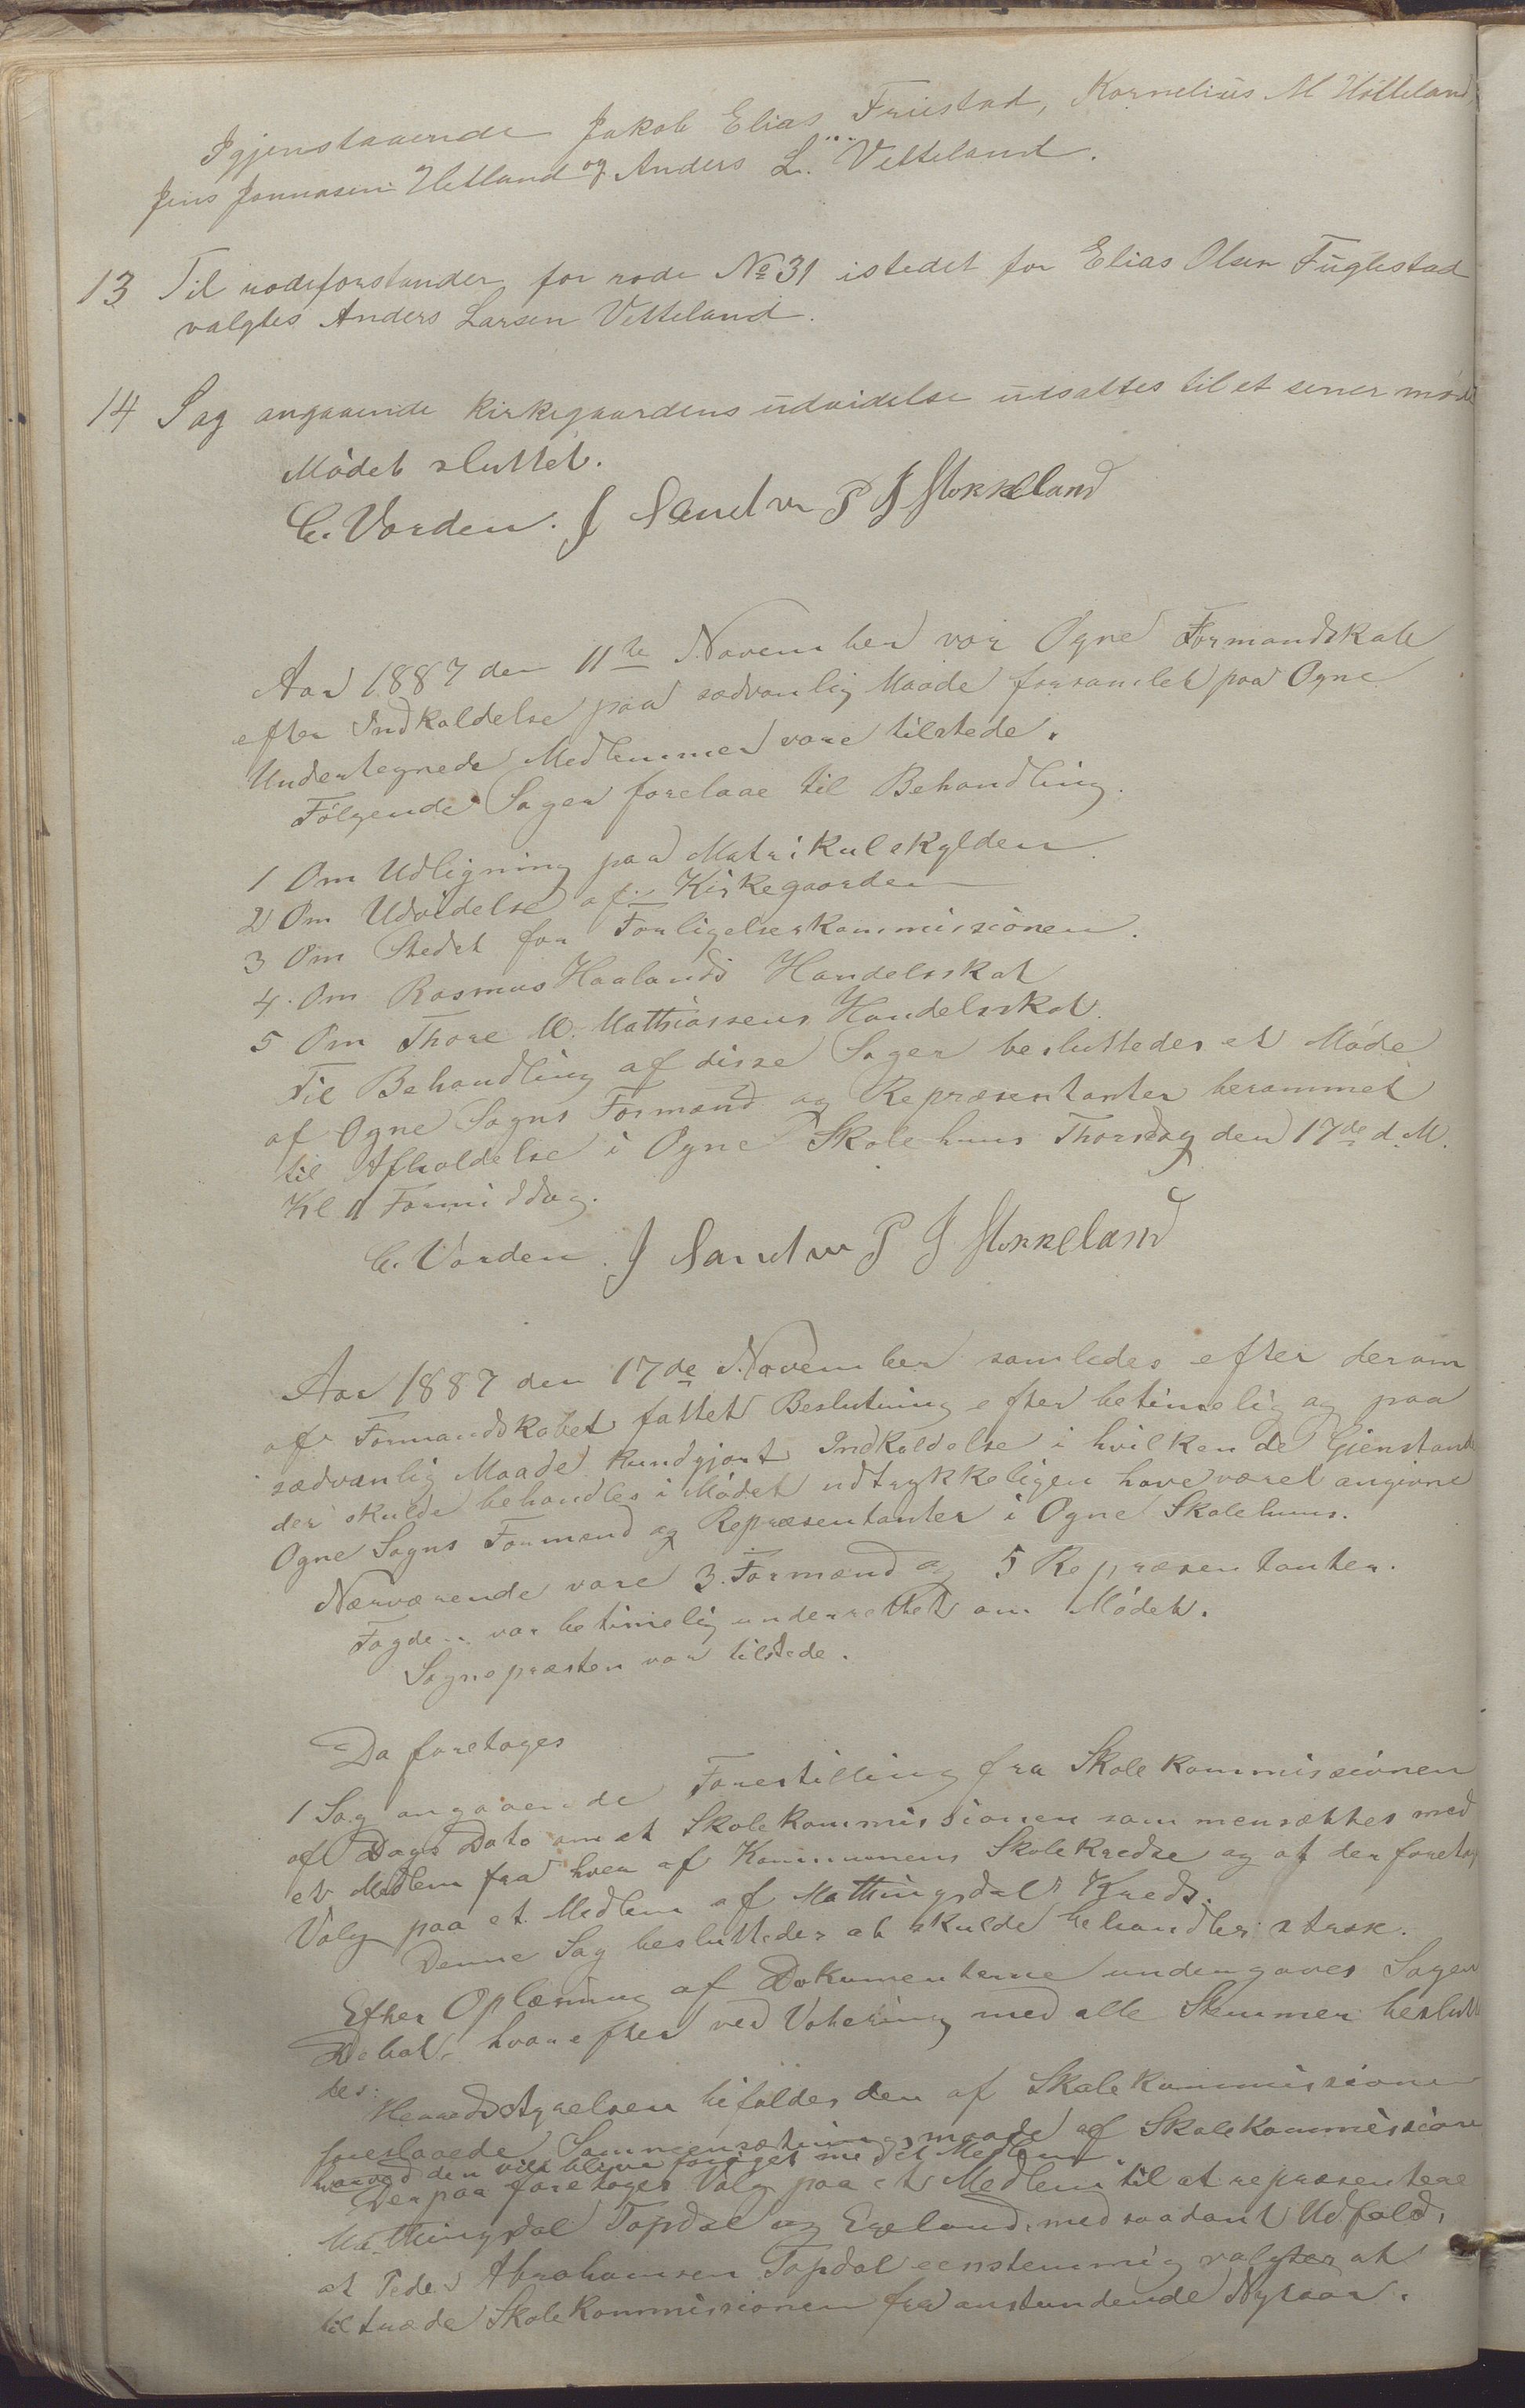 Igjenstaaende Jakob Elias Fuestad, Kornelius M Hölleland
Jens Jonnasen Hetland og Anders L. Vetteland.
13 Til rodeforstander for rode No 31 istedet for Elias Olsen Fuglestad
valgtes Anders Larsen Vetteland.
14 Sag angaaende Kirkegaardens udvidelse udsattes til et sener møde
Mödet sluttet.
C. Vorden. J Sandve P J Stokkeland
Aar 1887 den 11te November var Ogne Formandskab
efter Indkaldelse paa sædvanlig Maade forsamlet paa Ogne
Undertegnede Medlemmer vare tilstede.
Fölgende Sager forelaae til Behandling.
1 Om Udligning paa Matrikulskylden.
2 Om Udvidelse af Kirkegaarden
3 Om Stedet for Forligelseskommissionen.
4. Om Rasmus Haalands Handelsskat
5 Om Thore M. Mathiassens Handelsskat.
Til Behandling af disse Sager besluttedes et Möde
af Ogne Sogns Formænd og Repræsentanter berammet
til Afholdelse i Ogne Skolehuus Thorsdag den 17de d. M.
Kl 11 Formiddag.
C. Vorden. J Sandve P J Stokkeland
Aar 1887 den 17de November samledes efter derom
af Formandskabet fattet Beslutning efter betimelig og paa
sædvanlig Maade kundgjort Indkaldelse i hvilken de Gjenstande
der skulde behandles i Mödet udtrykkeligen have været angivne
Ogne Sogns Formænd og Repræsentanter i Ogne Skolehuus.
Nærværende vare 3 Formænd og 5 Repræsentanter.
Fogden var betimelig underrettet om Mödet.
Sognepræsten var tilstede.
Da foretoges
1 Sag angaaende Forestilling fra Skolekommissionen
af Dags Dato om at Skolekommissionen sammensættes med
et Medlem fra hver af Kommunens Skolekredse og at der foretages
Valg paa et Medlem af Mathingsdals Kreds.
Denne Sag besluttedes at skulde behandles strax.
Efter Oplæsning af Dokumenterne undergaves Sagen
Debat, hvorefter ved Votering med alle Stemmer beslutte
des:
Herredsstyrelsen bifaldes den af Skolekommissionen
foreslaaede Sammensætningsmaade af Skolekommissionen
hvorved den vill blive foröget med et Medlem.
Derpaa foretoges Valg paa et Medlem til at repræsentere
Mathingsdal Tapdal og Egeland, med saadant Udfald,
at Peder Abrahamsen Tapdal eenstemmig valgtes at
tiltræde Skolekommissionen fra anstundende Nytaar.